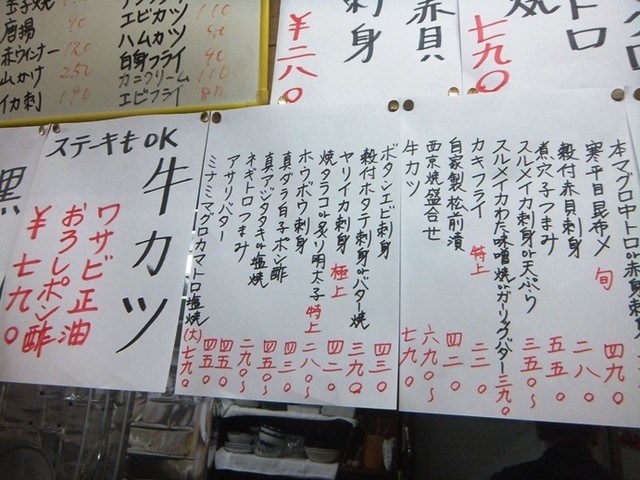 玉子焼
唐揚 90
赤ウィンナー 120
山かけ 250
イカ刺 190
エビカツ 110
ハムカツ 80
白身フライ 90
カニクリーム 110
エビフライ 80
刺身
￥二八〇
赤貝
七九〇
トロ
本マグロ中トロor赤身刺
四九〇
寒平目昆布〆 旬
四八〇
殻付赤貝刺身
二八〇
煮穴子つまみ
五五〇
スルメイカ刺身or天ぷら
三五〇〜
スルメイカわた味噌焼orガーリックバター 三九〇
カキフライ 特上
二二〇
自家製松前漬
四二〇
西京焼盛合せ
六九〇〜
牛カツ
七九〇
ボタンエビ刺身
四三〇
殻付ホタテ刺身orバター焼
三九〇
ヤリイカ刺身 極上
四二〇
焼タラコor炙り明太子 特上
二八〇〜
ホウボウ刺身
四三〇
真ダラ白子ポン酢
四三〇
真アジタタキor塩焼
二九〇〜
ネギトロつまみ
四五〇
アサリバター
四五〇
ミナミマグロカマトロ塩焼(大)七九〇
ステーキもOK
牛カツ
ワサビ正油
おろしポン酢
￥七九〇
黒